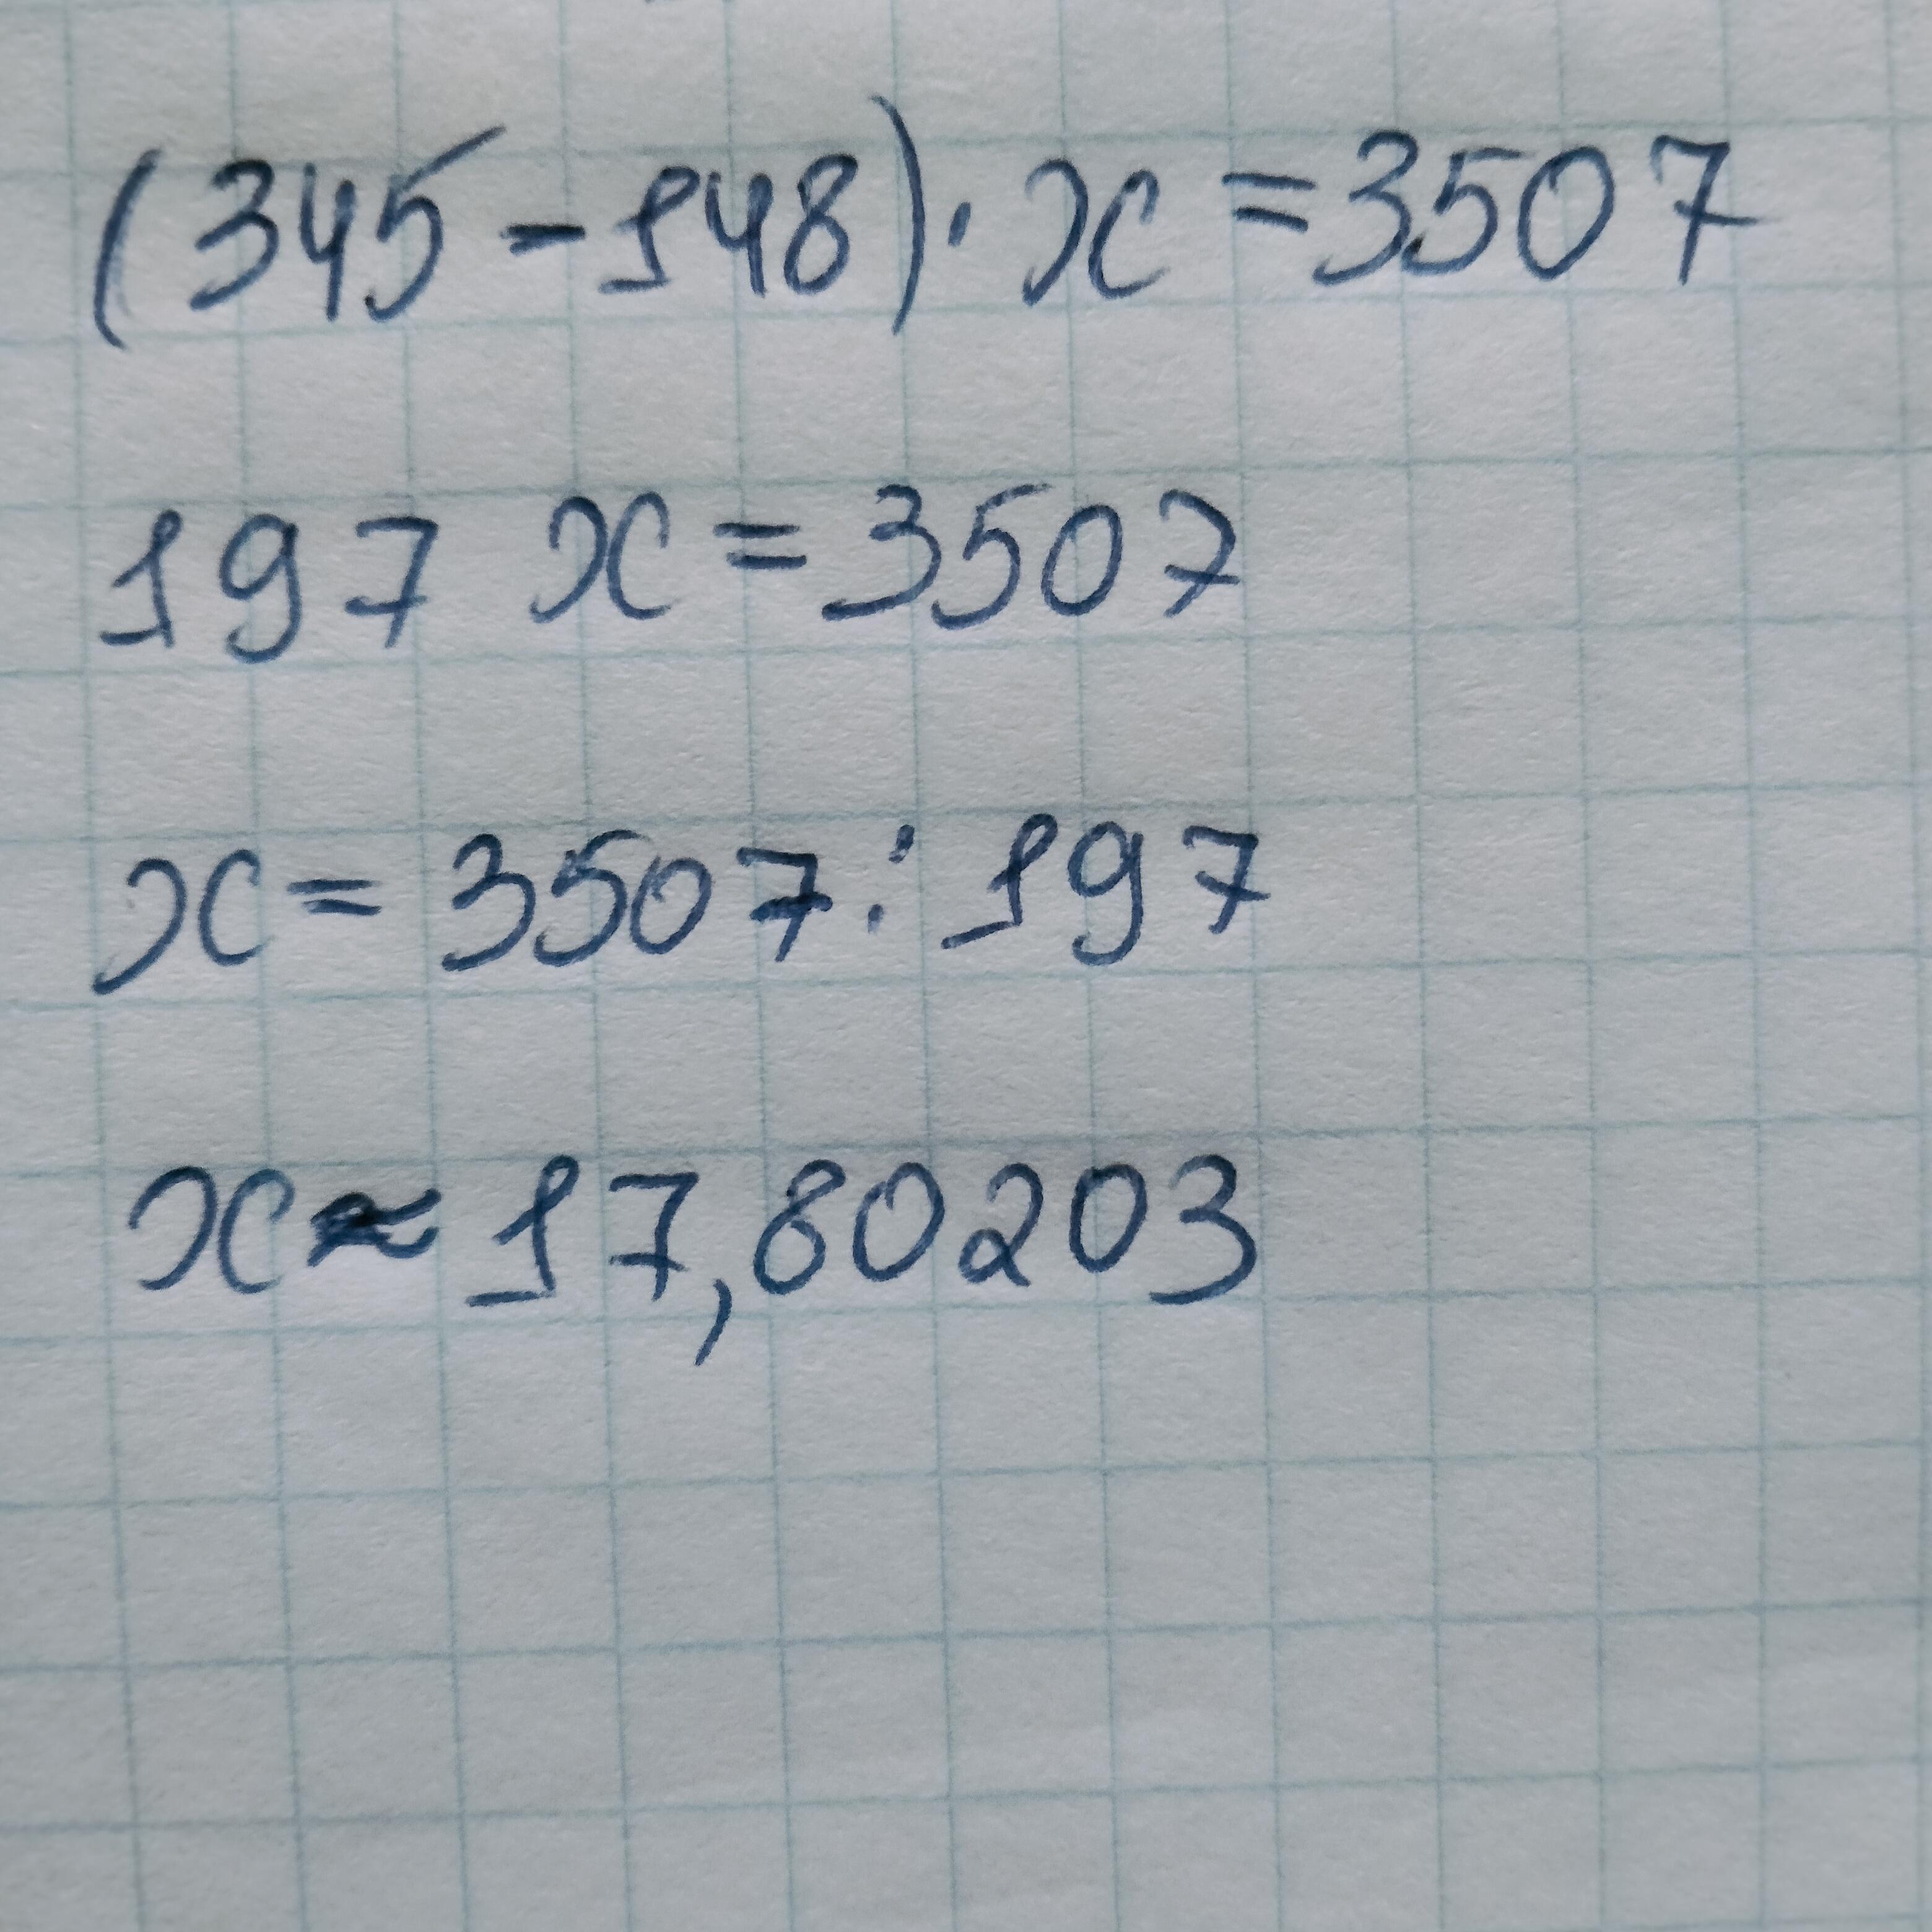 (345-148)·x=3507
197 x=3507
x=3507:197
x≈17,80203